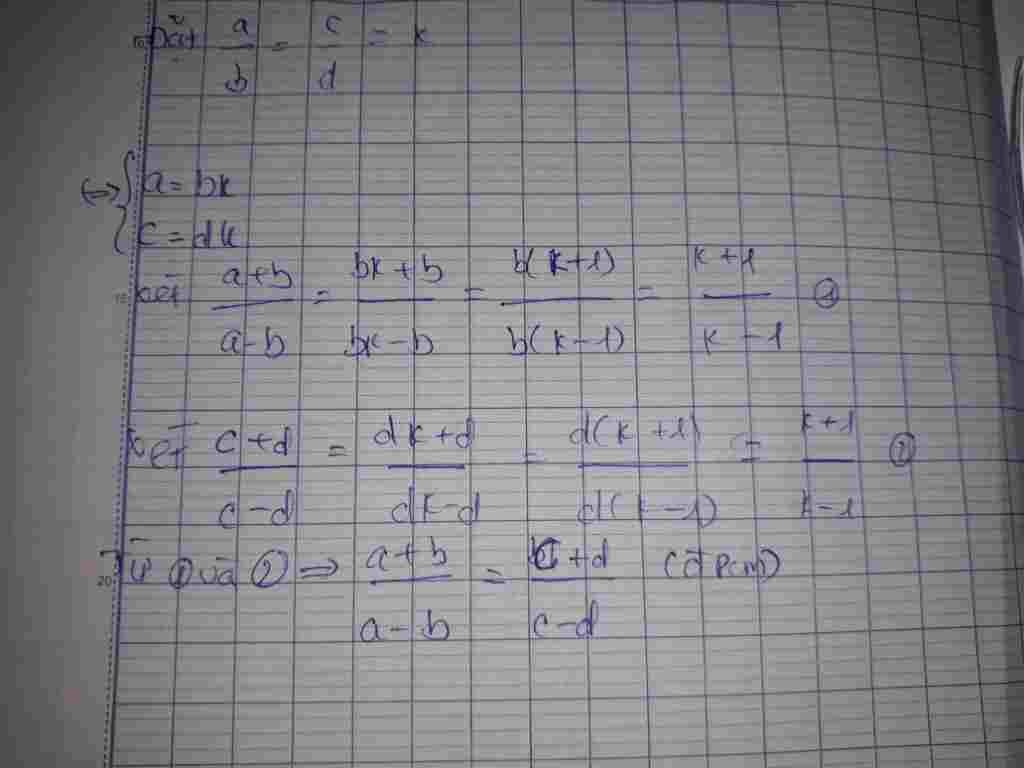 Đặt a/b = c/d = k
<=> { a = bk
{ c = dk
Xét (a+b)/(a-b) = (bk+b)/(bk-b) = b(k+1)/b(k-1) = (k+1)/(k-1) ①
Xét (c+d)/(c-d) = (dk+d)/(dk-d) = d(k+1)/d(k-1) = (k+1)/(k-1) ②
Từ ① và ② => (a+b)/(a-b) = (c+d)/(c-d) (đpcm)